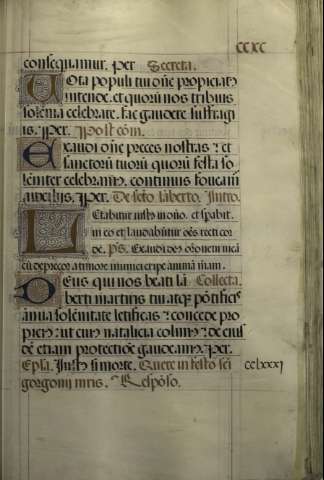 ccxc
consequamur. per Secreta.
Vota populi tui dñe propiciatꝰ
intende. et quorũ nos tribuis
solẽnia celebrare. fac gaudere suffragi
is. per. Post cõm.
Exaudi dñe preces nostras : et
sanctorũ tuorũ quorũ festa so
lẽniter celebramꝰ. continuis foueam̃
auxilijs. per. De scto lãberto. Intro.
Letabitur iustꝰ in dño. et spabit
in eo et laudabũtur oẽs recti cor
de. pš. Exaudi deꝰ orõnem meã
cũ deprecor a timore inimici eripe animã meam.
Deus qui nos beati lã Collecta.
berti martiris tui atqꝫ põtificis
ãnua solẽnitate letificas : concede pro
piciꝰ : ut cuius natalicia colimꝰ : de eiusdẽ
etiam protectiõe gaudeamꝰ. per.
Epĺa. Iustꝰ si morte. Quere in festo sci cclxxxi
gorgonij mris. Respõso.